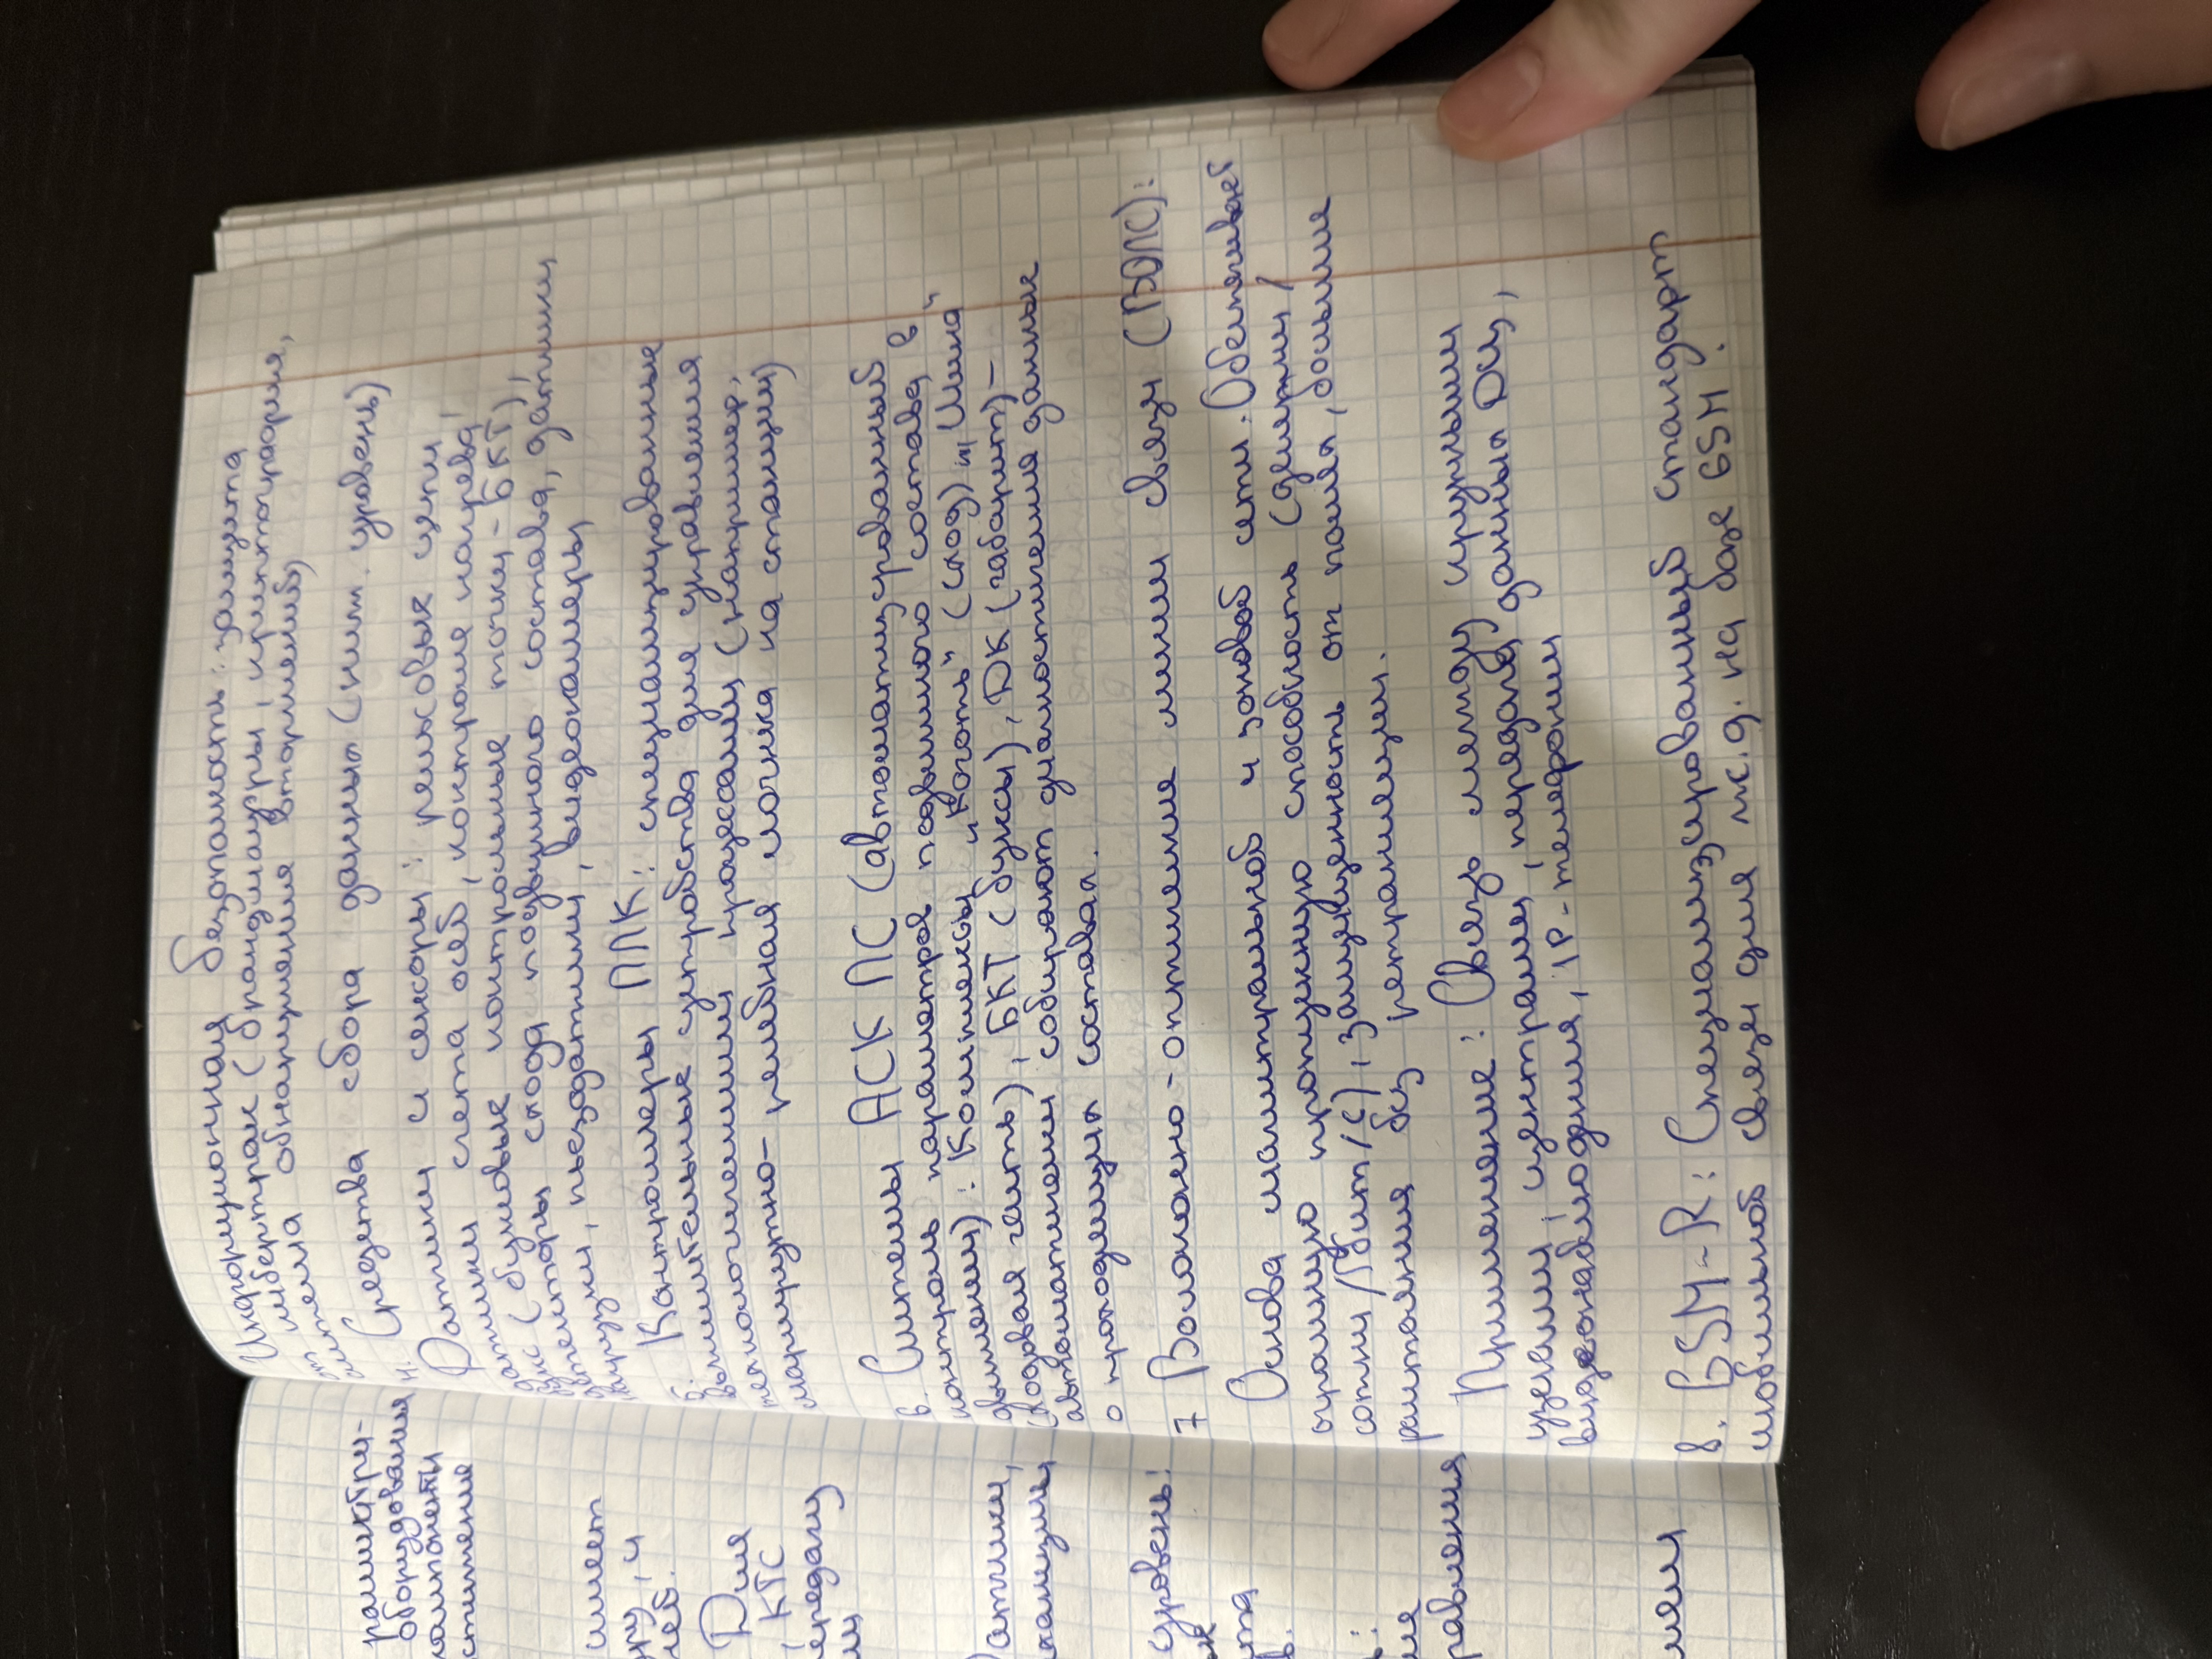 Информационная безопасность: защита
от кибератак (брандмауэры, криптография,
система обнаружения вторжений)
4. Средства сбора данных (ниж. уровень)
Датчики и сенсоры: рельсовые цепи,
датчики счета осей, контроля нагрева
букс (буксовые контрольные точки - БКТ),
детекторы схода подвижного состава, датчики
нагрузки, пьезодатчики, видеокамеры
5. Контроллеры ПЛК: специализированные
вычислительные устройства для управления
технологическими процессами (например,
маршрутно-релейная логика на станции)
6. Системы АСК ПС (автоматизированный
контроль параметров подвижного состава в
движении): Комплексы "Коготь" (сход), "Шина"
(ходовая часть), БКТ (буксы), ДК (габарит) -
автоматически собирают диагностические данные
о проходящих составах.
7 Волоконо-оптические линии связи (ВОЛС):
Основа магистральной и зоновой сети. Обеспечивает
огромную пропускную способность (десятки/
сотни Гбит/с), защищенность от помех, большие
расстояния без ретрансляции.
Применение: Связь между крупными
узлами, центрами, передача данных ДЦ,
видеонаблюдения, IP-телефонии
8. GSM-R: Специализированный стандарт
мобильной связи для ж.д. на базе GSM.
оборудования
компоненты
имеет
Для
КТС
передачу
Датчики,
уровень: